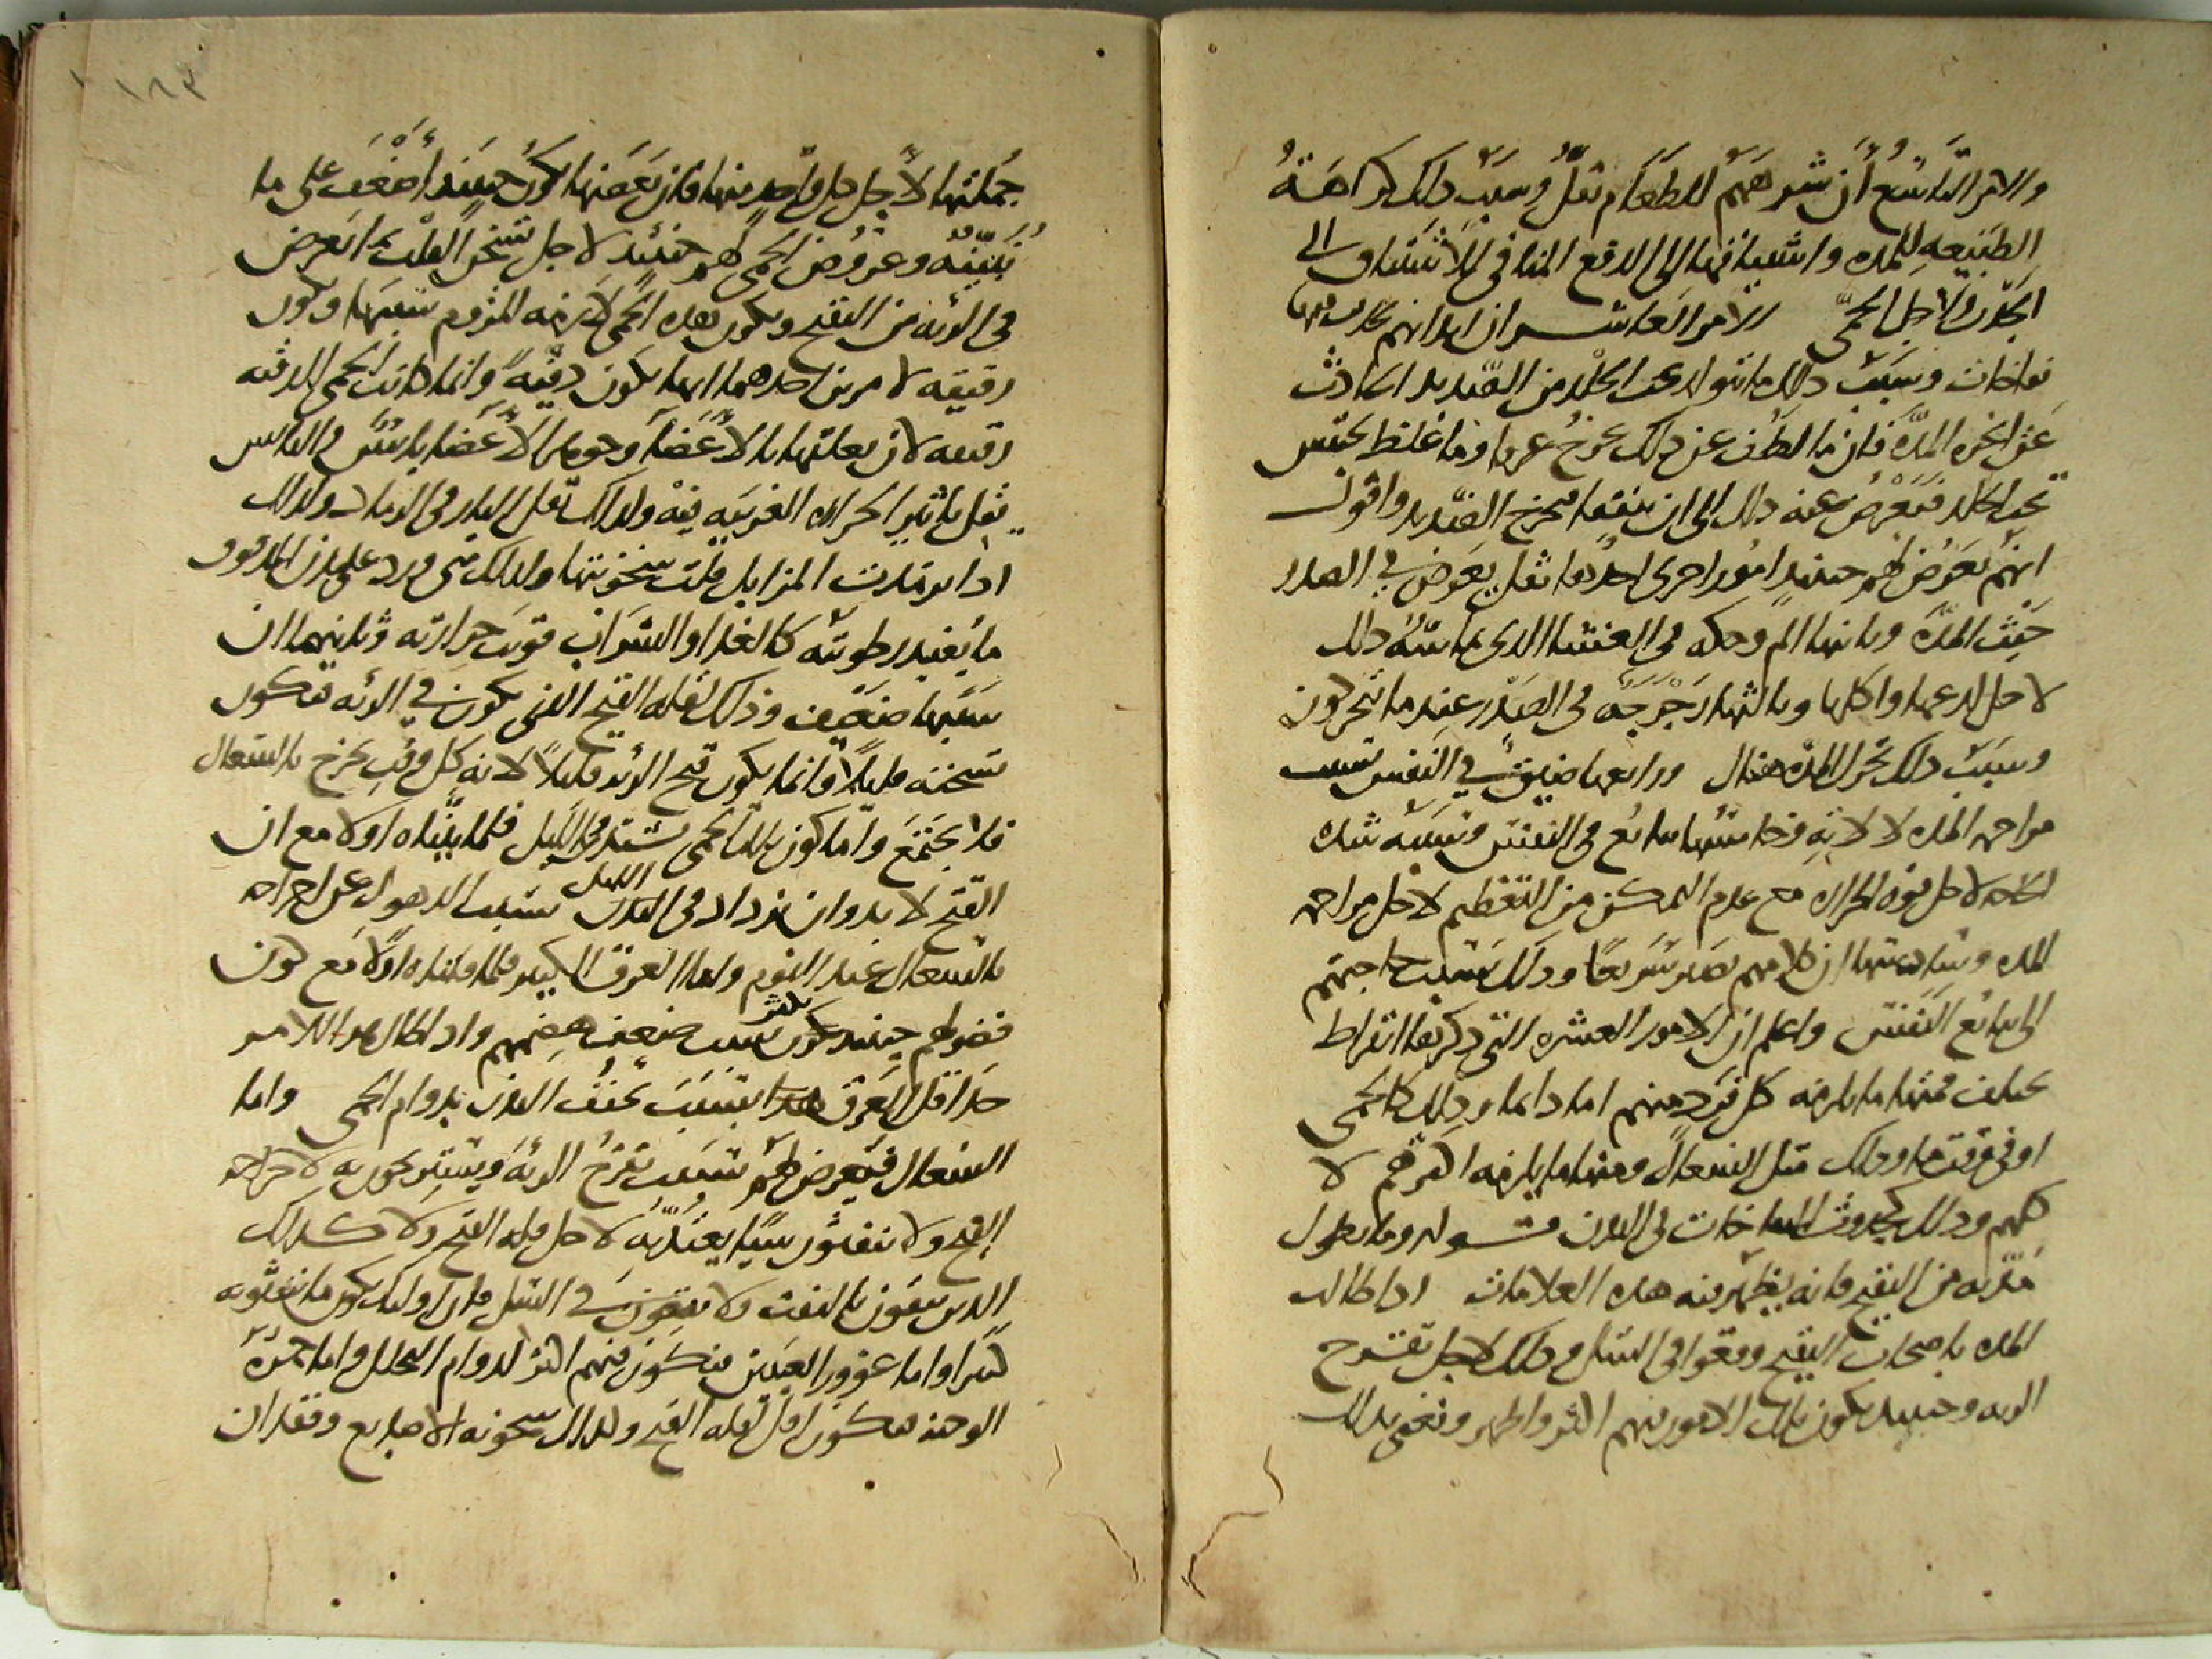 والامر التاسع أن شهوتهم للطعام تقل وسبب ذلك كراهة
الطبيعه للمده واشتياقها الى الدفع المنافى للاشتياق الى
الجذب ولاجل الحمى الامر العاشر ان ابدانهم تحدث فيها
نفاخات وسبب ذلك ما يتولد تحت الجلد من الصديد الحادث
عن ابخره المدة فان ما لطف عن ذلك يخرج عرقا وما غلظ يحتبس
تحت الجلد فيعرض عنه ذلك الى ان ينفقا فيخرج الصديد واقول
انهم يعرض لهم حينئذ امور اخرى احدها ثقل يعرض في الصدر
حيث المدة وثانيها الم وحكه فى الغشا الذى تماسه وذلك
لاجل لدعها واكلها وثالثها رجرجة فى الصدر عندما يتحركون
وسبب ذلك تحرك المدة هناك ورابعها ضيق في النفس بسبب
مزاحمه المده لالاته وخامسها تتابع فى النفس وسببه شده
الحاجه لاجل قوه الحراره مع عدم التمكن من التعظيم لاجل مزاحمه
المده وسادسها ان كلامهم يصير سريعا وذلك بسبب حاجتهم
الى تتابع النفس واعلم ان الامور العشره التى ذكرها ابقراط
تختلف فمنها ما يلزمه كل فرد منهم اما دايما وذلك كالحمى
او فى وقت ما وذلك مثل السعال ومنها ما يلزمه اكثرهم لا
كلهم وذلك كحدوث النفاخات فى البدن وما يطول
مدته من التقيح فانه يظهر فيه هذه العلامات اذا طالت
المده باصحاب التقيح وقعوا فى السل وذلك لاجل تقرح
الريه وحينئذ يكون تلك الامور فيهم اكثر واظهر ونعنى بذلك
جملتها لا جل كل واحد منها فان بعضها يكون حينئذ أضعف على ما
نبينه وعروض الحمى لهم حينئذ لاجل تسخن القلب بما يعرض
فى الرئه من التقيح ويكون هذه الحمى لازمه للزوم سببها وتكون
رقيقه لامرين احدهما انها تكون دقيه وانما كانت الحمى الدقيه
رقيقه لان تعلقها بالاعضاء وجوهر الاعضا يابس واليابس
يقل تاثير الحراره الغريبه فيه ولذلك تقل النار فى الرماد ولذلك
اذا ترمدت المزابل قلت سخونتها ولذلك متى ورد على بدن المدقوق
ما يفيد رطوبته كالغدا والشراب قويت حرارته وثانيهما ان
سببها ضعيف وذلك لقله القيح الذى يكون في الرئه فيكون
تسخنه قليلا وانما يكون قيح الرئه قليلا لانه كل وقت يخرج بالسعال
فلا يجتمع واما كون تلك الحمى تشتد فى الليل فلما بيناه اولا مع ان
القيح لا بد وان يزداد فى الليل بسبب الدهول عن اخراجه
بالسعال عند النوم واما العرق الكثير فلما قلناه اولا مع كون
فضولهم حينئذ تكثر بسبب ضعف هضمهم واذا طال هذا الامر
جدا قل العرق بسبب تجفف البدن بدوام الحمى واما
السعال فيعرض لهم بسبب تقرح الرئة ويشتد تحركه لاخراج
القيح ولا ينفثون شيا يعتد به لاجل قله القيح ولا كذلك
الذين ينقون بالنفث ولا يقعون في السل فان اوليك يكون ما ينفثونه
كثيرا واما غور العينين فيكون فيهم اكثر لدوام التحلل واما حمرة
الوجنه فتكون اقل لقله القيح وكذلك سخونه الاصابع وفقدان